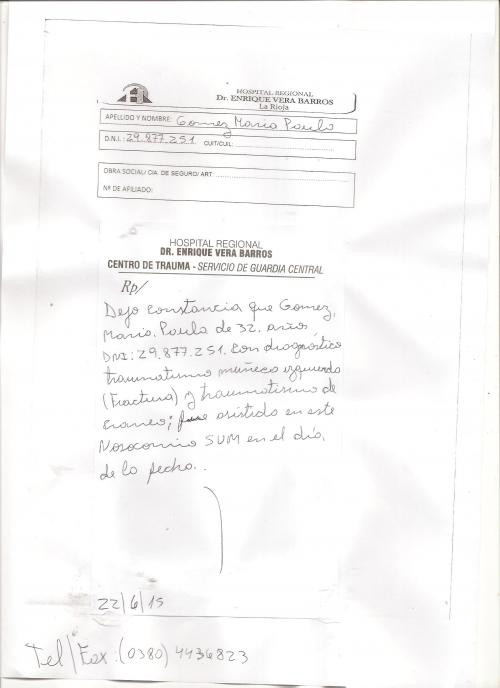 HOSPITAL REGIONAL
Dr. ENRIQUE VERA BARROS
La Rioja
APELLIDO Y NOMBRE: Gomez Mario Paulo
D.N.I.: 29.877.251 CUIT/CUIL:
OBRA SOCIAL/ CIA. DE SEGURO/ ART:
Nº DE AFILIADO:
HOSPITAL REGIONAL
DR. ENRIQUE VERA BARROS
CENTRO DE TRAUMA - SERVICIO DE GUARDIA CENTRAL
Rp/
Dejo constancia que Gomez,
Mario, Paulo de 32. años,
DNI: 29.877.251. con diagnostico
traumatismo muñeca izquierda
(Fractura) y traumatismo de
craneo; fue asistido en este
Nosocomio SUM en el día,
de la fecha..
22/6/15
Tel/Fax: (0380) 4436823